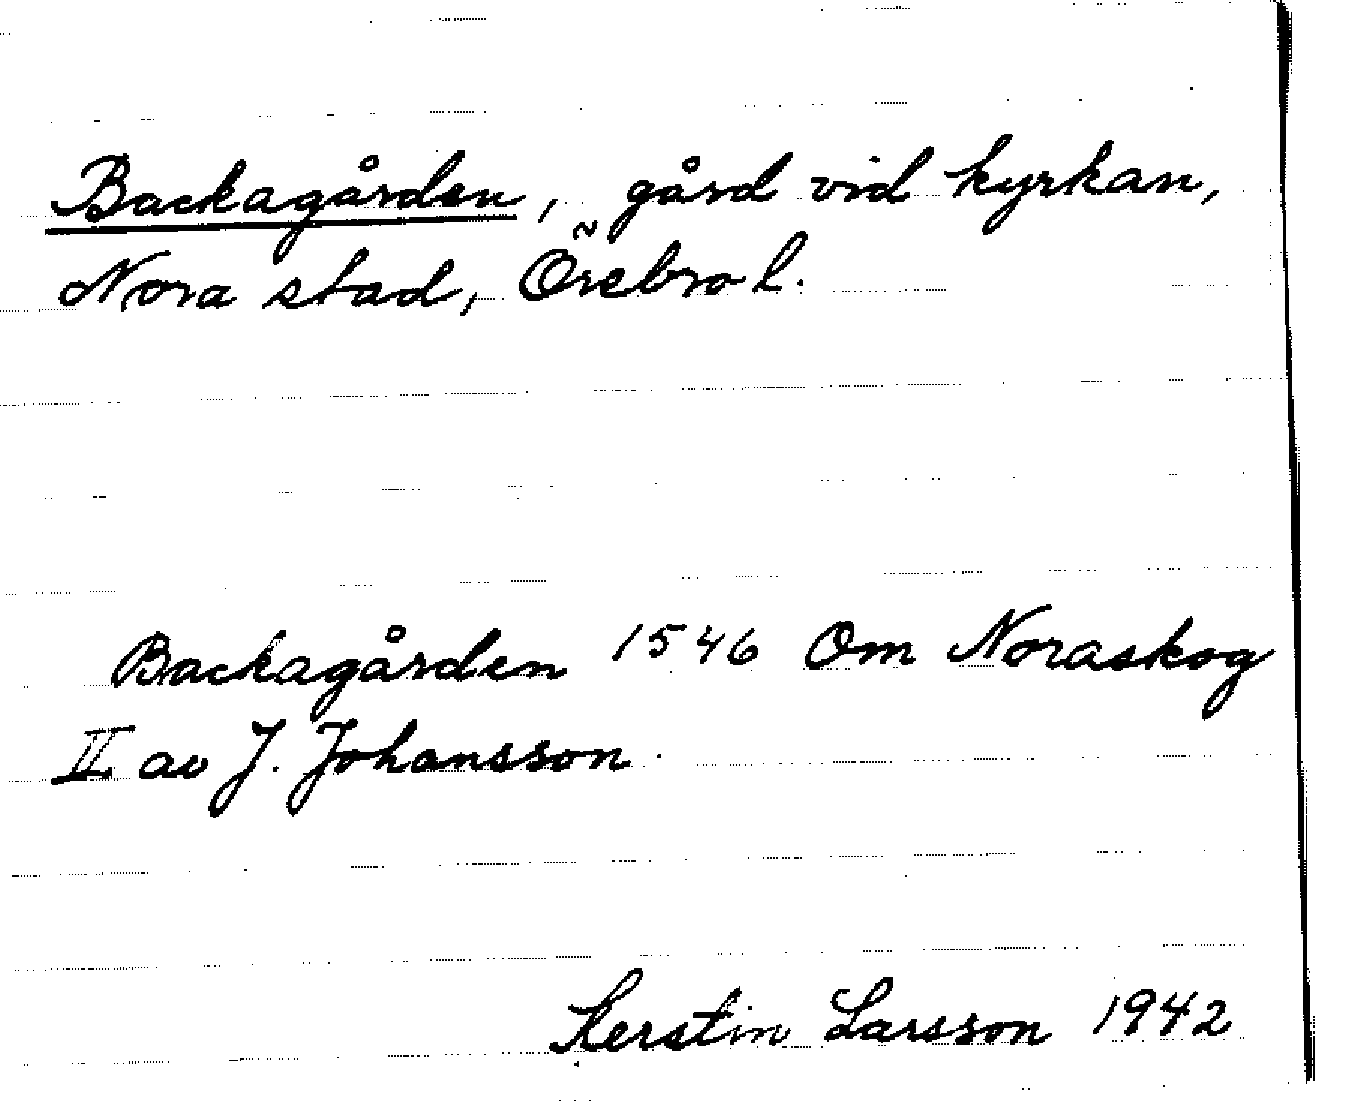 Backagården, gård vid kyrkan,
Nora stad, Örebro l.
Backagården 1546 Om Noraskog
II av J. Johansson.
Kerstin Larsson 1942